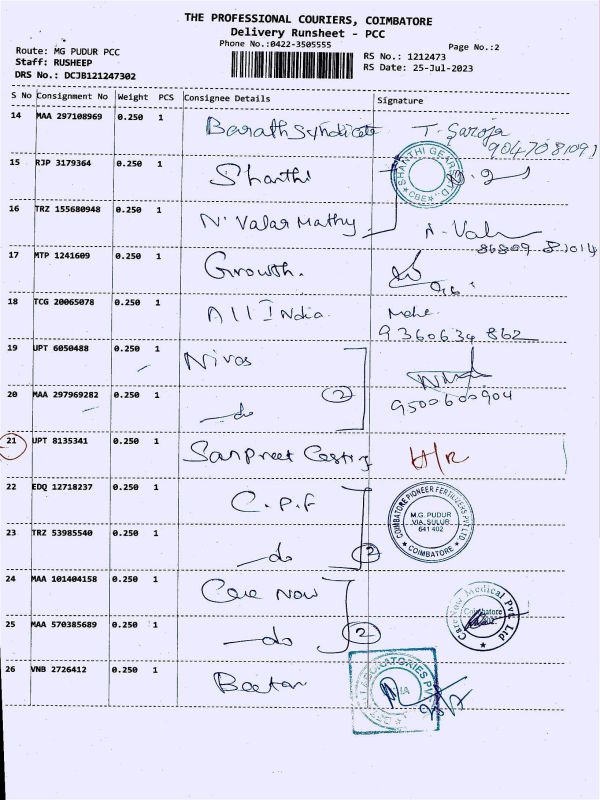 THE PROFESSIONAL COURIERS, COIMBATORE
Delivery Runsheet - PCC
Phone No.:0422-3505555
Page No.:2
Route: MG PUDUR PCC
Staff: RUSHEEP
DRS No.: DCJB121247302
RS No.: 1212473
RS Date: 25-Jul-2023
S No Consignment No Weight PCS Consignee Details Signature
14 MAA 297108969 0.250 1 Barath Syndicate T. Saroja
9047081091
15 RJP 3179364 0.250 1 Shanthi SHANTHI GEARS LTD. CBE
16 TRZ 155680948 0.250 1 N. Valar Mathy N. Val
86809 81014
17 MTP 1241609 0.250 1 Growth.
18 TCG 20065078 0.250 1 All India
9360634862
19 UPT 6050488 0.250 1 Nivas
20 MAA 297969282 0.250 1 do 2 9500600904
21 UPT 8135341 0.250 1 Sanpreet Casting H/R
22 EDQ 12718237 0.250 1 C.P.F COIMBATORE PIONEER FERTILIZERS PVT LTD.
M.G. PUDUR
VIA. SULUR
641 402
COIMBATORE
23 TRZ 53985540 0.250 1 do 2
24 MAA 101404158 0.250 1 Care Now CareNow Medical Pvt. Ltd
Coimbatore
25 MAA 570385689 0.250 1 do 2
26 VNB 2726412 0.250 1 LABORATORIES PVT